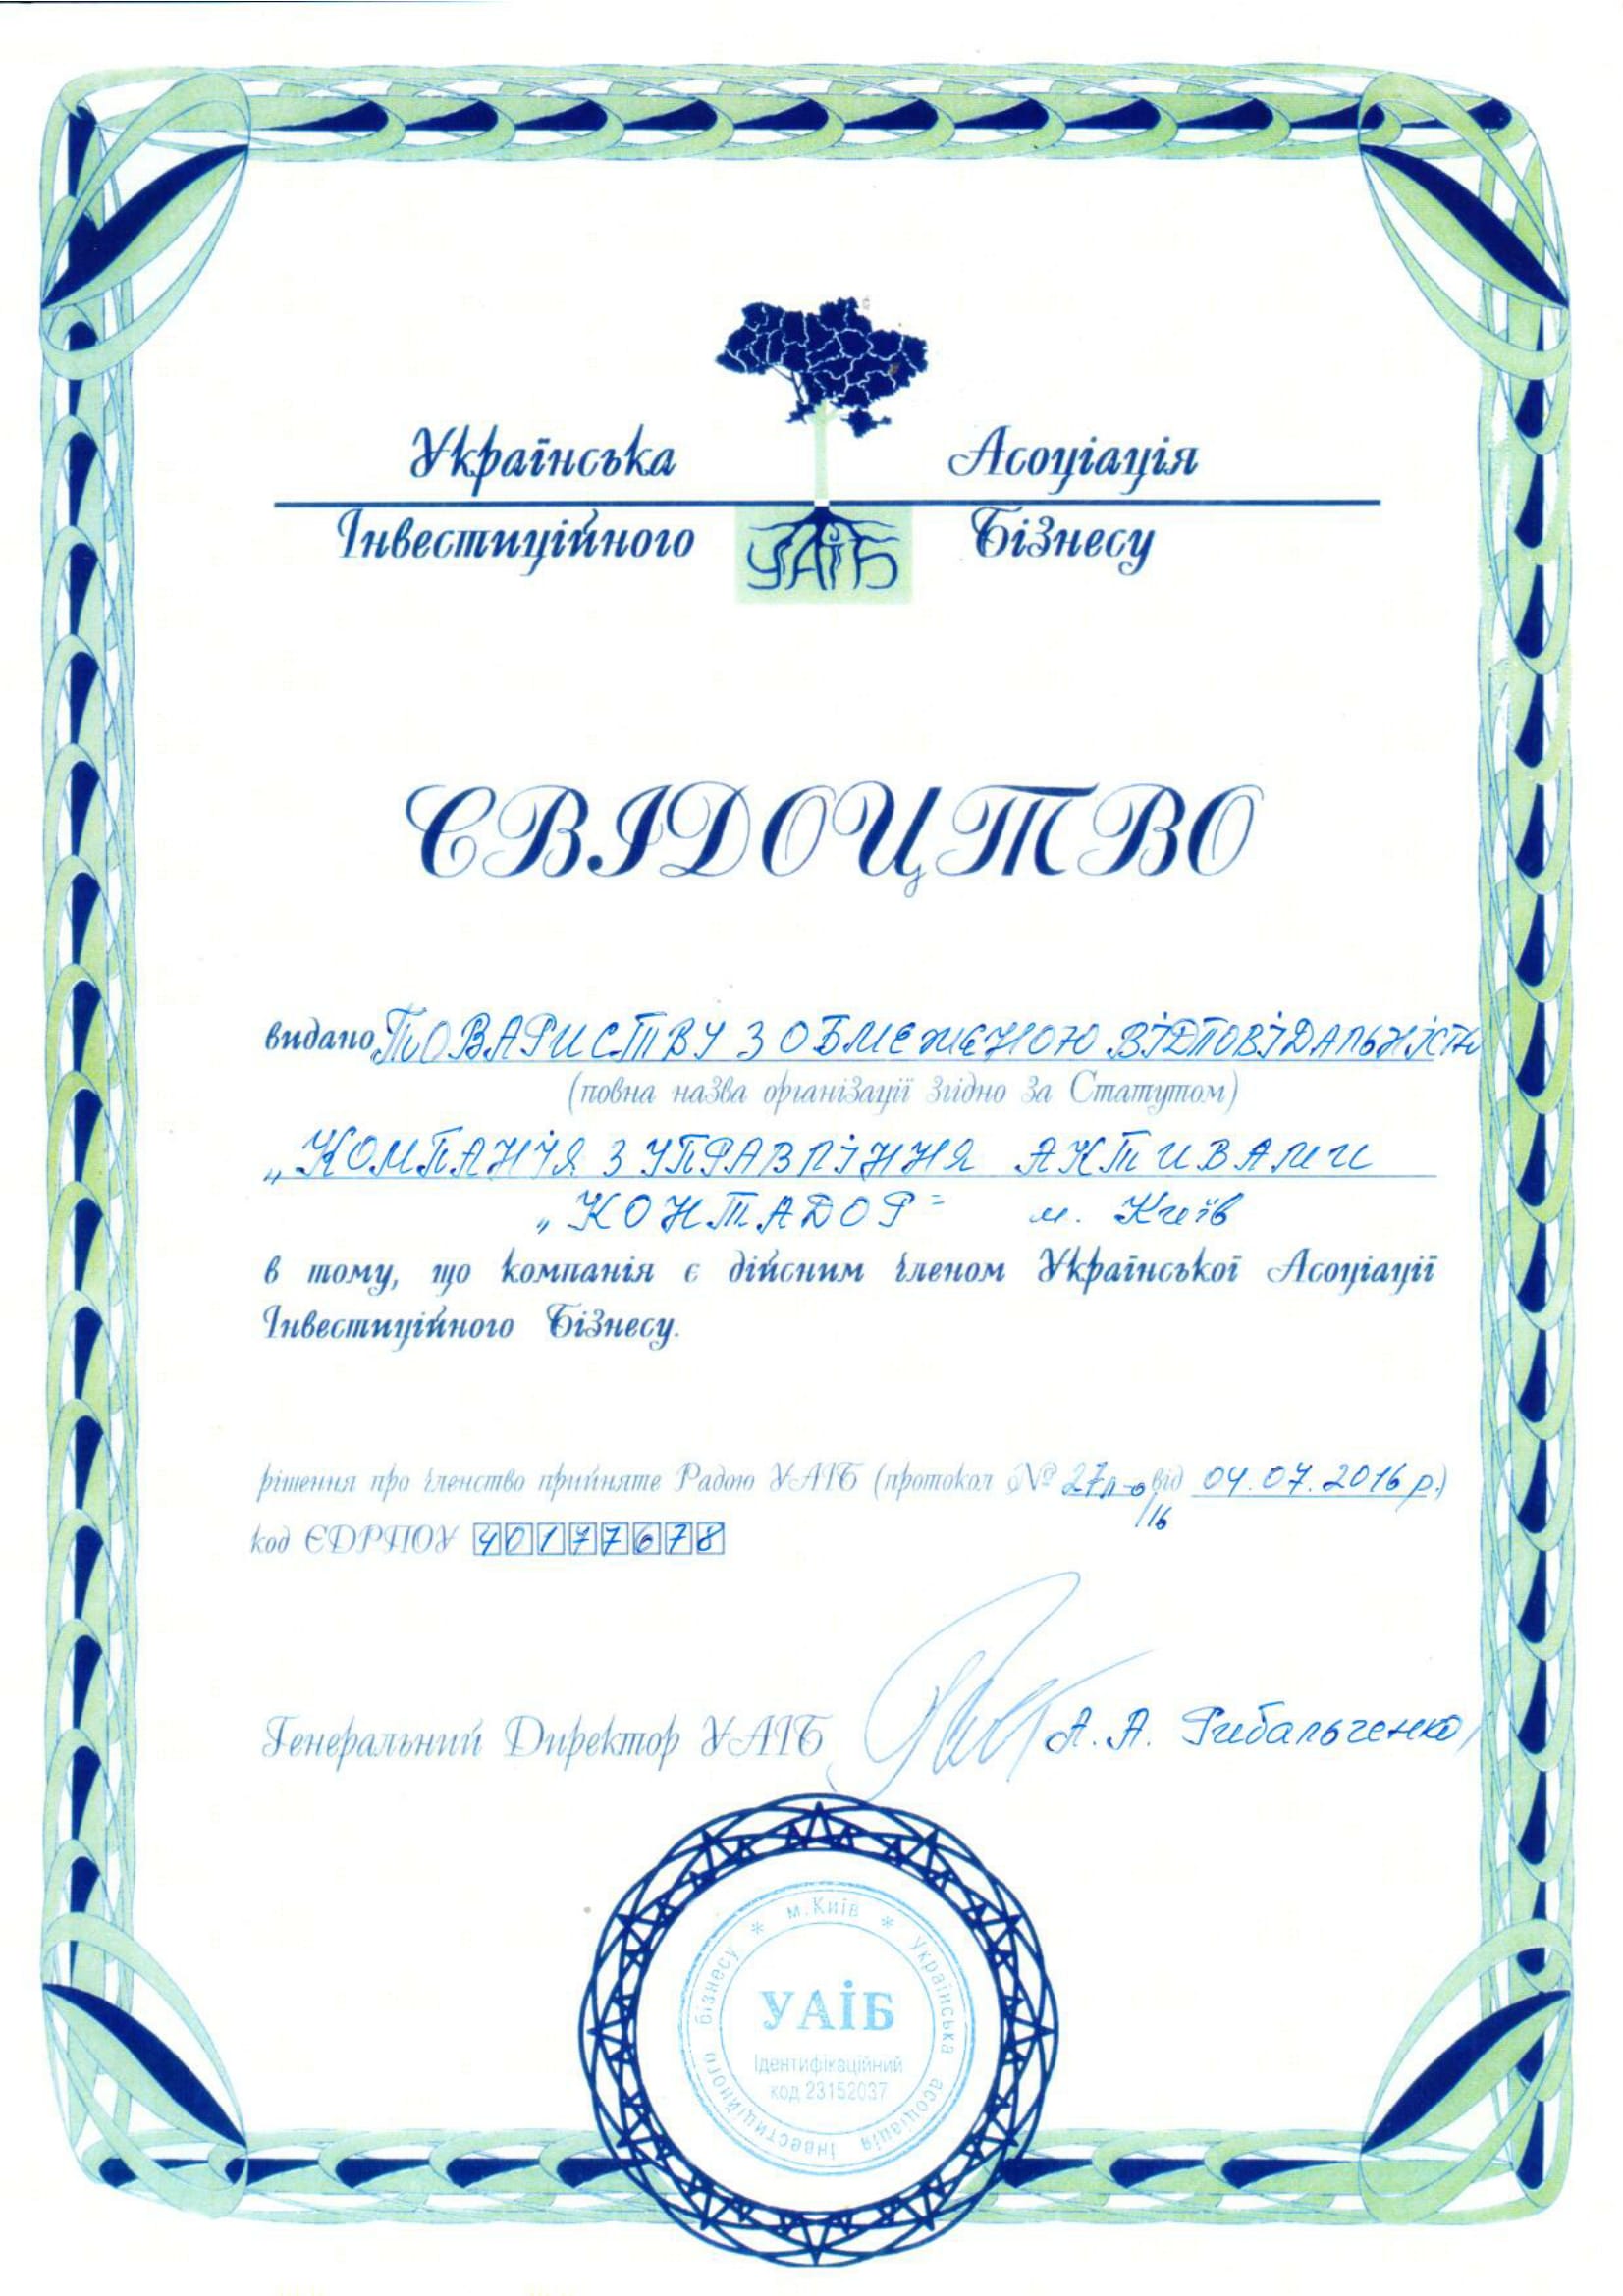 Українська Асоціація
Інвестиційного УАІБ Бізнесу
СВІДОЦТВО
видано ТОВАРИСТВУ З ОБМЕЖЕНОЮ ВІДПОВІДАЛЬНІСТЮ
(повна назва організації згідно за Статутом)
„КОМПАНІЯ З УПРАВЛІННЯ АКТИВАМИ
„КОНТАДОР" м. Київ
в тому, що компанія є дійсним членом Української Асоціації
Інвестиційного Бізнесу.
рішення про членство прийняте Радою УАІБ (протокол № 27п-о/16 від 04.07.2016 р.)
код ЄДРПОУ 40177678
Генеральний Директор УАІБ А. А. Рибальченко
* м. Київ * Українська асоціація інвестиційного бізнесу
УАІБ
Ідентифікаційний
код 23152037